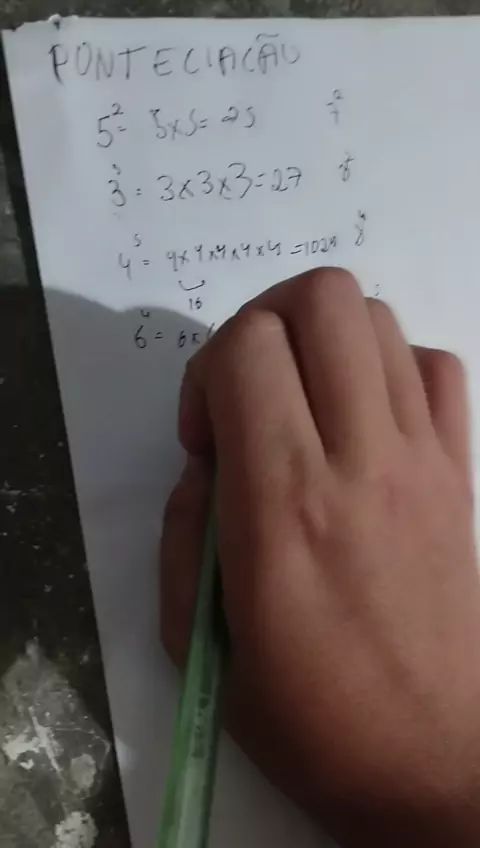 PONTECIAÇÃO
5² = 5x5 = 25 7²
3³ = 3x3x3 = 27 8
4⁵ = 4x4x4x4x4 = 1024 8⁴
16
6⁴ = 6x